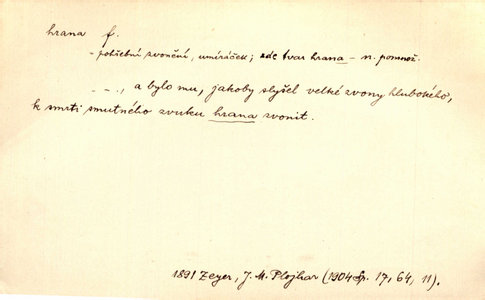 hrana f.
- pohřební zvonění, umíráček; zde tvar hrana - n. pomnož.
- - -, a bylo mu, jakoby slyšel velké zvony hlubokého,
k smrti smutného zvuku hrana zvonit.
1891 Zeyer, J. M. Plojhar (1904 Sp. 17, 64, 11).